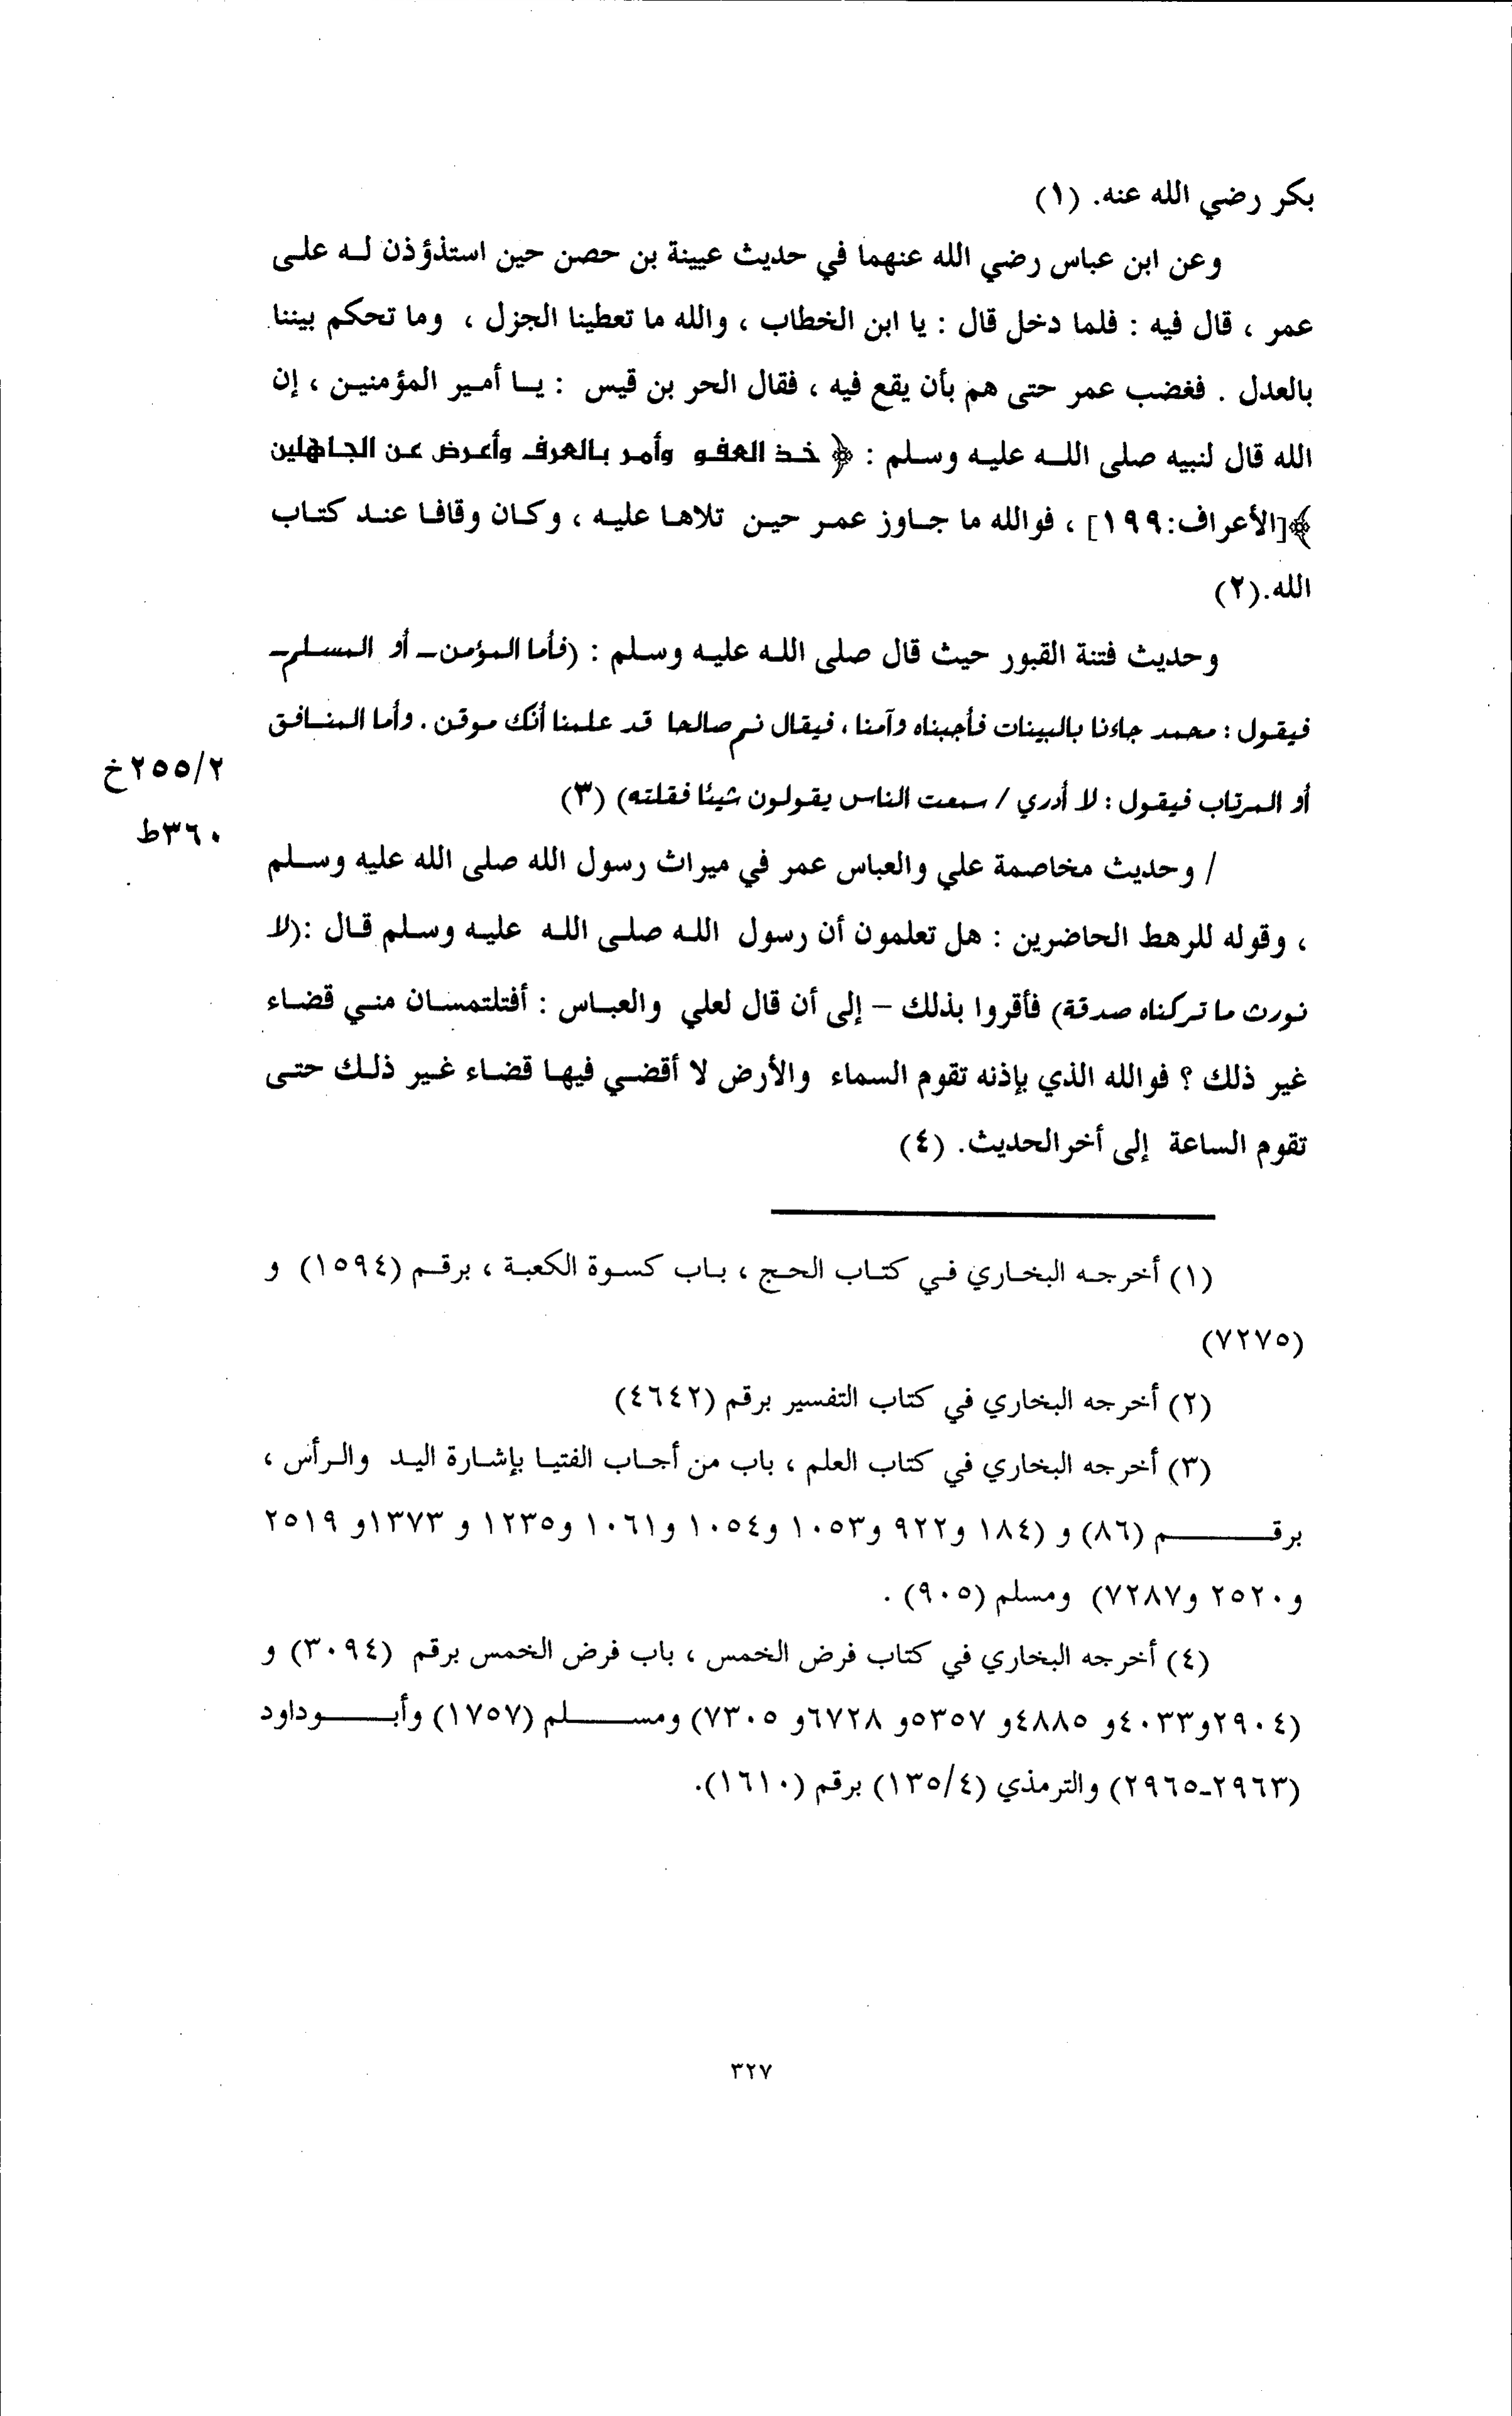 بكر رضي الله عنه. (١)
وعن ابن عباس رضي الله عنهما في حديث عيينة بن حصن حين استذؤذن له على
عمر ، قال فيه : فلما دخل قال : يا ابن الخطاب ، والله ما تعطينا الجزل ، وما تحكم بيننا
بالعدل . فغضب عمر حتى هم بأن يقع فيه ، فقال الحر بن قيس : يا أمير المؤمنين ، إن
الله قال لنبيه صلى الله عليه وسلم : ﴿ خذ العفو وأمر بالعرف وأعرض عن الجاهلين
﴾[الأعراف:١٩٩] ، فوالله ما جاوز عمر حين تلاها عليه ، وكان وقافا عند كتاب
الله.(٢)
وحديث فتنة القبور حيث قال صلى الله عليه وسلم : (فأما المؤمن_ أو المسلم_
فيقول : محمد جاءنا بالبينات فأجبناه وآمنا ، فيقال نم صالحا قد علمنا أنك موقن . وأما المنافق
أو المرتاب فيقول : لا أدري / سمعت الناس يقولون شيئا فقلته) (٣)
٢/٢٥٥خ
٣٦٠ط
/ وحديث مخاصمة علي والعباس عمر في ميراث رسول الله صلى الله عليه وسلم
، وقوله للرهط الحاضرين : هل تعلمون أن رسول الله صلى الله عليه وسلم قال :(لا
نورث ما تركناه صدقة) فأقروا بذلك – إلى أن قال لعلي والعباس : أفتلتمسان مني قضاء
غير ذلك ؟ فوالله الذي بإذنه تقوم السماء والأرض لا أقضي فيها قضاء غير ذلك حتى
تقوم الساعة إلى أخرالحديث. (٤)
(١) أخرجه البخاري في كتاب الحج ، باب كسوة الكعبة ، برقم (١٥٩٤) و
(٧٢٧٥)
(٢) أخرجه البخاري في كتاب التفسير برقم (٤٦٤٢)
(٣) أخرجه البخاري في كتاب العلم ، باب من أجاب الفتيا بإشارة اليد والرأس ،
برقم (٨٦) و (١٨٤ و٩٢٢ و١٠٥٣ و١٠٥٤ و١٠٦١ و١٢٣٥ و ١٣٧٣و ٢٥١٩
و٢٥٢٠ و٧٢٨٧) ومسلم (٩٠٥) .
(٤) أخرجه البخاري في كتاب فرض الخمس ، باب فرض الخمس برقم (٣٠٩٤) و
(٢٩٠٤و٤٠٣٣و ٤٨٨٥و ٥٣٥٧و ٦٧٢٨و ٧٣٠٥) ومسلم (١٧٥٧) وأبوداود
(٢٩٦٣_٢٩٦٥) والترمذي (٤/١٣٥) برقم (١٦١٠).
٣٢٧